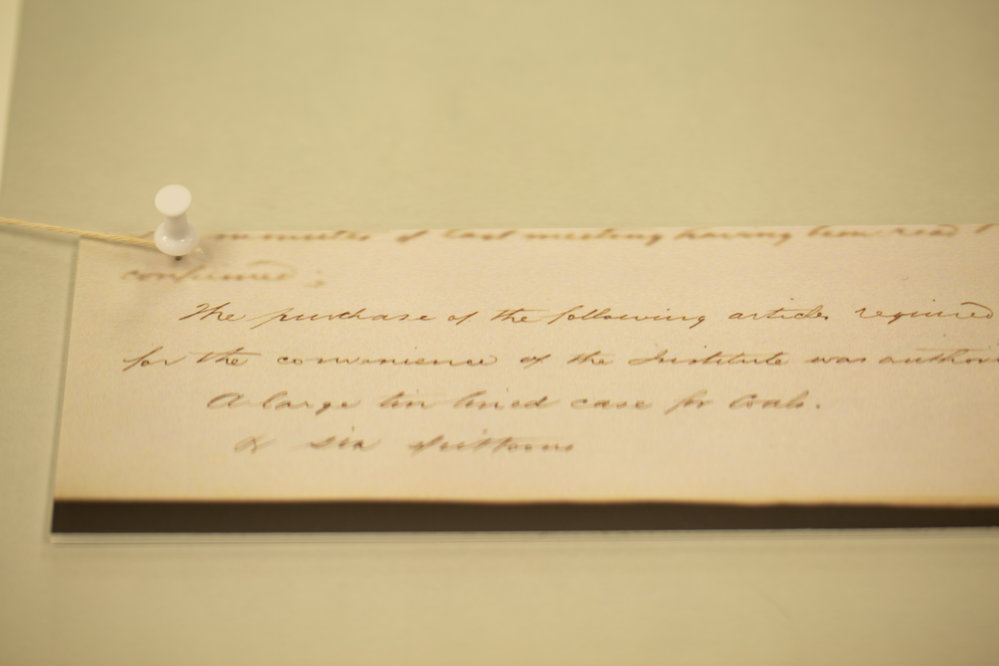 minutes of last meeting having been read
confirmed :-
The purchase of the following articles required
for the convenience of the Institute was
A large tin lined case for Coals.
& six Spittoons